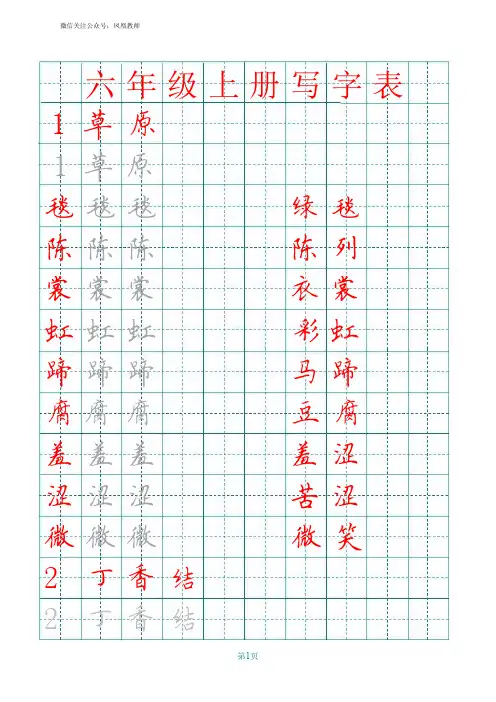 微信关注公众号：凤凰教师
六年级上册写字表
1草原
1草原
毯毯毯 绿毯
陈陈陈 陈列
裳裳裳 衣裳
虹虹虹 彩虹
蹄蹄蹄 马蹄
腐腐腐 豆腐
羞羞羞 羞涩
涩涩涩 苦涩
微微微 微笑
2丁香结
2丁香结
第1页